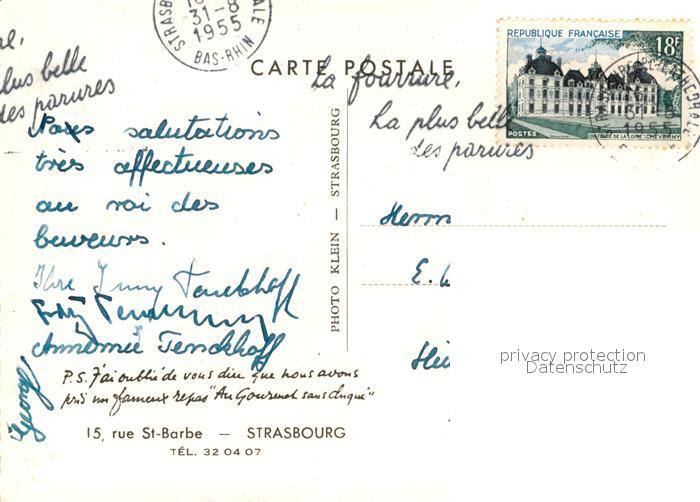 STRASBOURG GALE
18
31-8
1955
BAS-RHIN
plus belle
des parures
CARTE POSTALE
La fourrure,
La plus belle
des parures
REPUBLIQUE FRANÇAISE
18F
POSTES
CHATEAUX DE LA LOIRE : CHEVERNY
Nos salutations
très affectueuses
au roi des
buveurs.
Ihre Jenny Tenckhoff
Annemie Tenckhoff
Georg
P.S. J'ai oublié de vous dire que nous avons
pris nos fameux repas "Au Gourmet sans chiqué"
15, rue St-Barbe — STRASBOURG
TÉL. 32 04 07
PHOTO KLEIN — STRASBOURG
Herrn
E.
privacy protection
Datenschutz